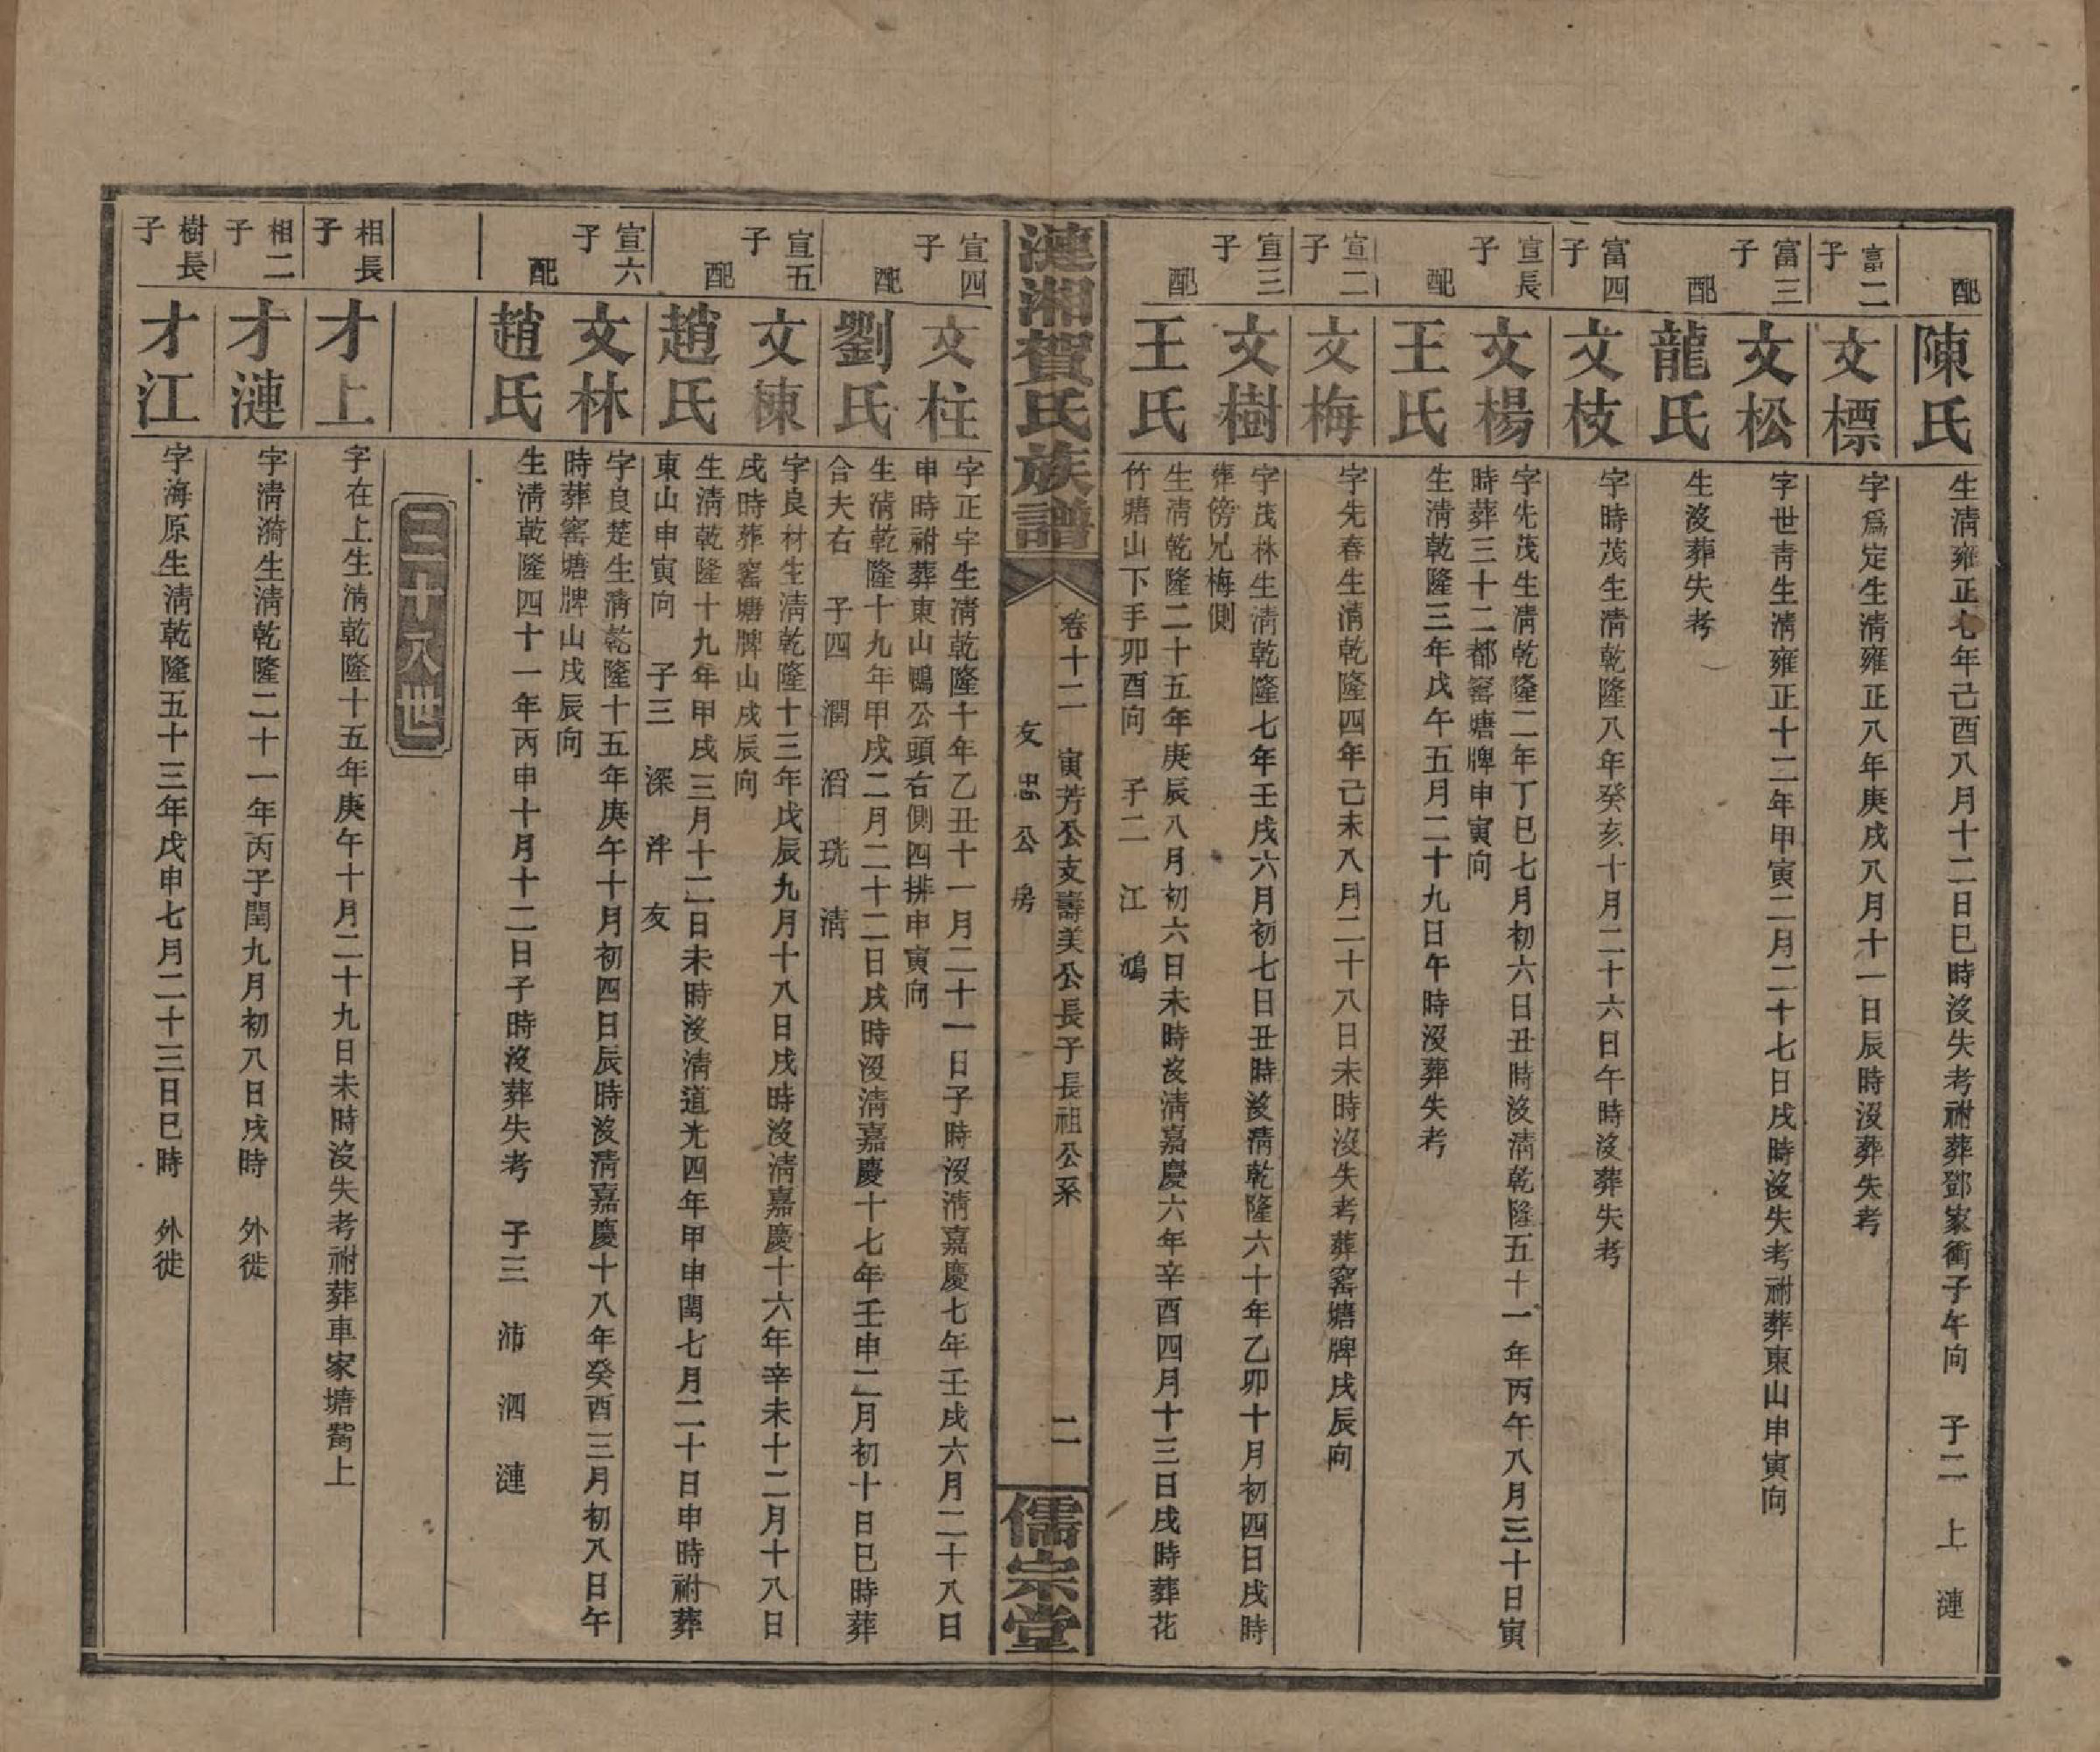 配
陳氏
生清雍正七年己酉八月十二日巳時沒失考祔葬鄧家衝子午向　子二　上　漣
富二子
文標
字爲定生清雍正八年庚戌八月十一日辰時沒葬失考
富三子
文松
字世青生清雍正十二年甲寅二月二十七日戌時沒失考祔葬東山申寅向
配
龍氏
生沒葬失考
富四子
文枝
字時茂生清乾隆八年癸亥十月二十六日午時沒葬失考
宣長子
文楊
字先茂生清乾隆二年丁巳七月初六日丑時沒清乾隆五十一年丙午八月三十日寅
時葬三十二都窰塘牌申寅向
配
王氏
生清乾隆三年戊午五月二十九日午時沒葬失考
宣二子
文梅
字先春生清乾隆四年己未八月二十八日未時沒失考葬窰塘牌戌辰向
宣三子
文樹
字茂林生清乾隆七年壬戌六月初七日丑時沒清乾隆六十年乙卯十月初四日戌時
葬傍兄梅側
配
王氏
生清乾隆二十五年庚辰八月初六日未時沒清嘉慶六年辛酉四月十三日戌時葬花
竹塘山下手卯酉向　子二　江　鴻
漣湘賀氏族譜
卷十二　寅芳公支壽美公長子長祖公系
友忠公房
二
儒宗堂
宣四子
文柱
字正宇生清乾隆十年乙丑十一月二十一日子時沒清嘉慶七年壬戌六月二十八日
申時祔葬東山鴨公頭右側四排申寅向
配
劉氏
生清乾隆十九年甲戌二月二十二日戌時沒清嘉慶十七年壬申二月初十日巳時葬
合夫右　子四　潤　滔　珖　淸
宣五子
文棟
字良材生清乾隆十三年戊辰九月十八日戌時沒清嘉慶十六年辛未十二月十八日
戌時葬窰塘牌山戌辰向
配
趙氏
生清乾隆十九年甲戌三月十二日未時沒清道光四年甲申閏七月二十日申時祔葬
東山申寅向　子三　深　泮　友
宣六子
文林
字良楚生清乾隆十五年庚午十月初四日辰時沒清嘉慶十八年癸酉三月初八日午
時葬窰塘牌山戌辰向
配
趙氏
生清乾隆四十一年丙申十月十二日子時沒葬失考　子三　沛　泗　漣
三十八世
相長子
才上
字在上生清乾隆十五年庚午十月二十九日未時沒失考祔葬車家塘嘴上
相二子
才漣
字清漪生清乾隆二十一年丙子閏九月初八日戌時　外徙
樹長子
才江
字海原生清乾隆五十三年戊申七月二十三日巳時　外徙